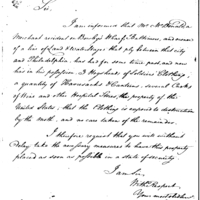 Sir,
I am informed that Mr. McDonald
Merchant resident on Bowly's Wharf Baltimore, and owner
of a line of Land & Water Stages that ply between that city
and Philadelphia has had for some time past and now
has in his possession 3 Hogsheads of Soldiers Clothing,
a quantity of Knapsacks & Canteens, several Casks
of Wine and other Hospital Stores, the property of the
United States, that the Clothing is exposed to destruction
by the moth and no care taken of the remainder.
I therefore request that you will without
delay take the necessary measures to have this property
placed as soon as possible in a state of security.
I am Sir,
With Respect,
Your most obedient